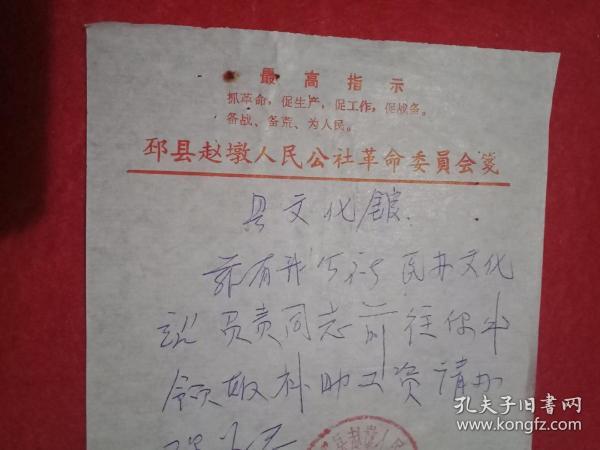 最高指示
抓革命，促生产，促工作，促战备。
备战、备荒、为人民。
邳县赵墩人民公社革命委員会箋
县文化館
兹有我公社民办文化
站负责同志前往你处
领取补助工资请办
孔夫子旧书网
www.kongfz.com